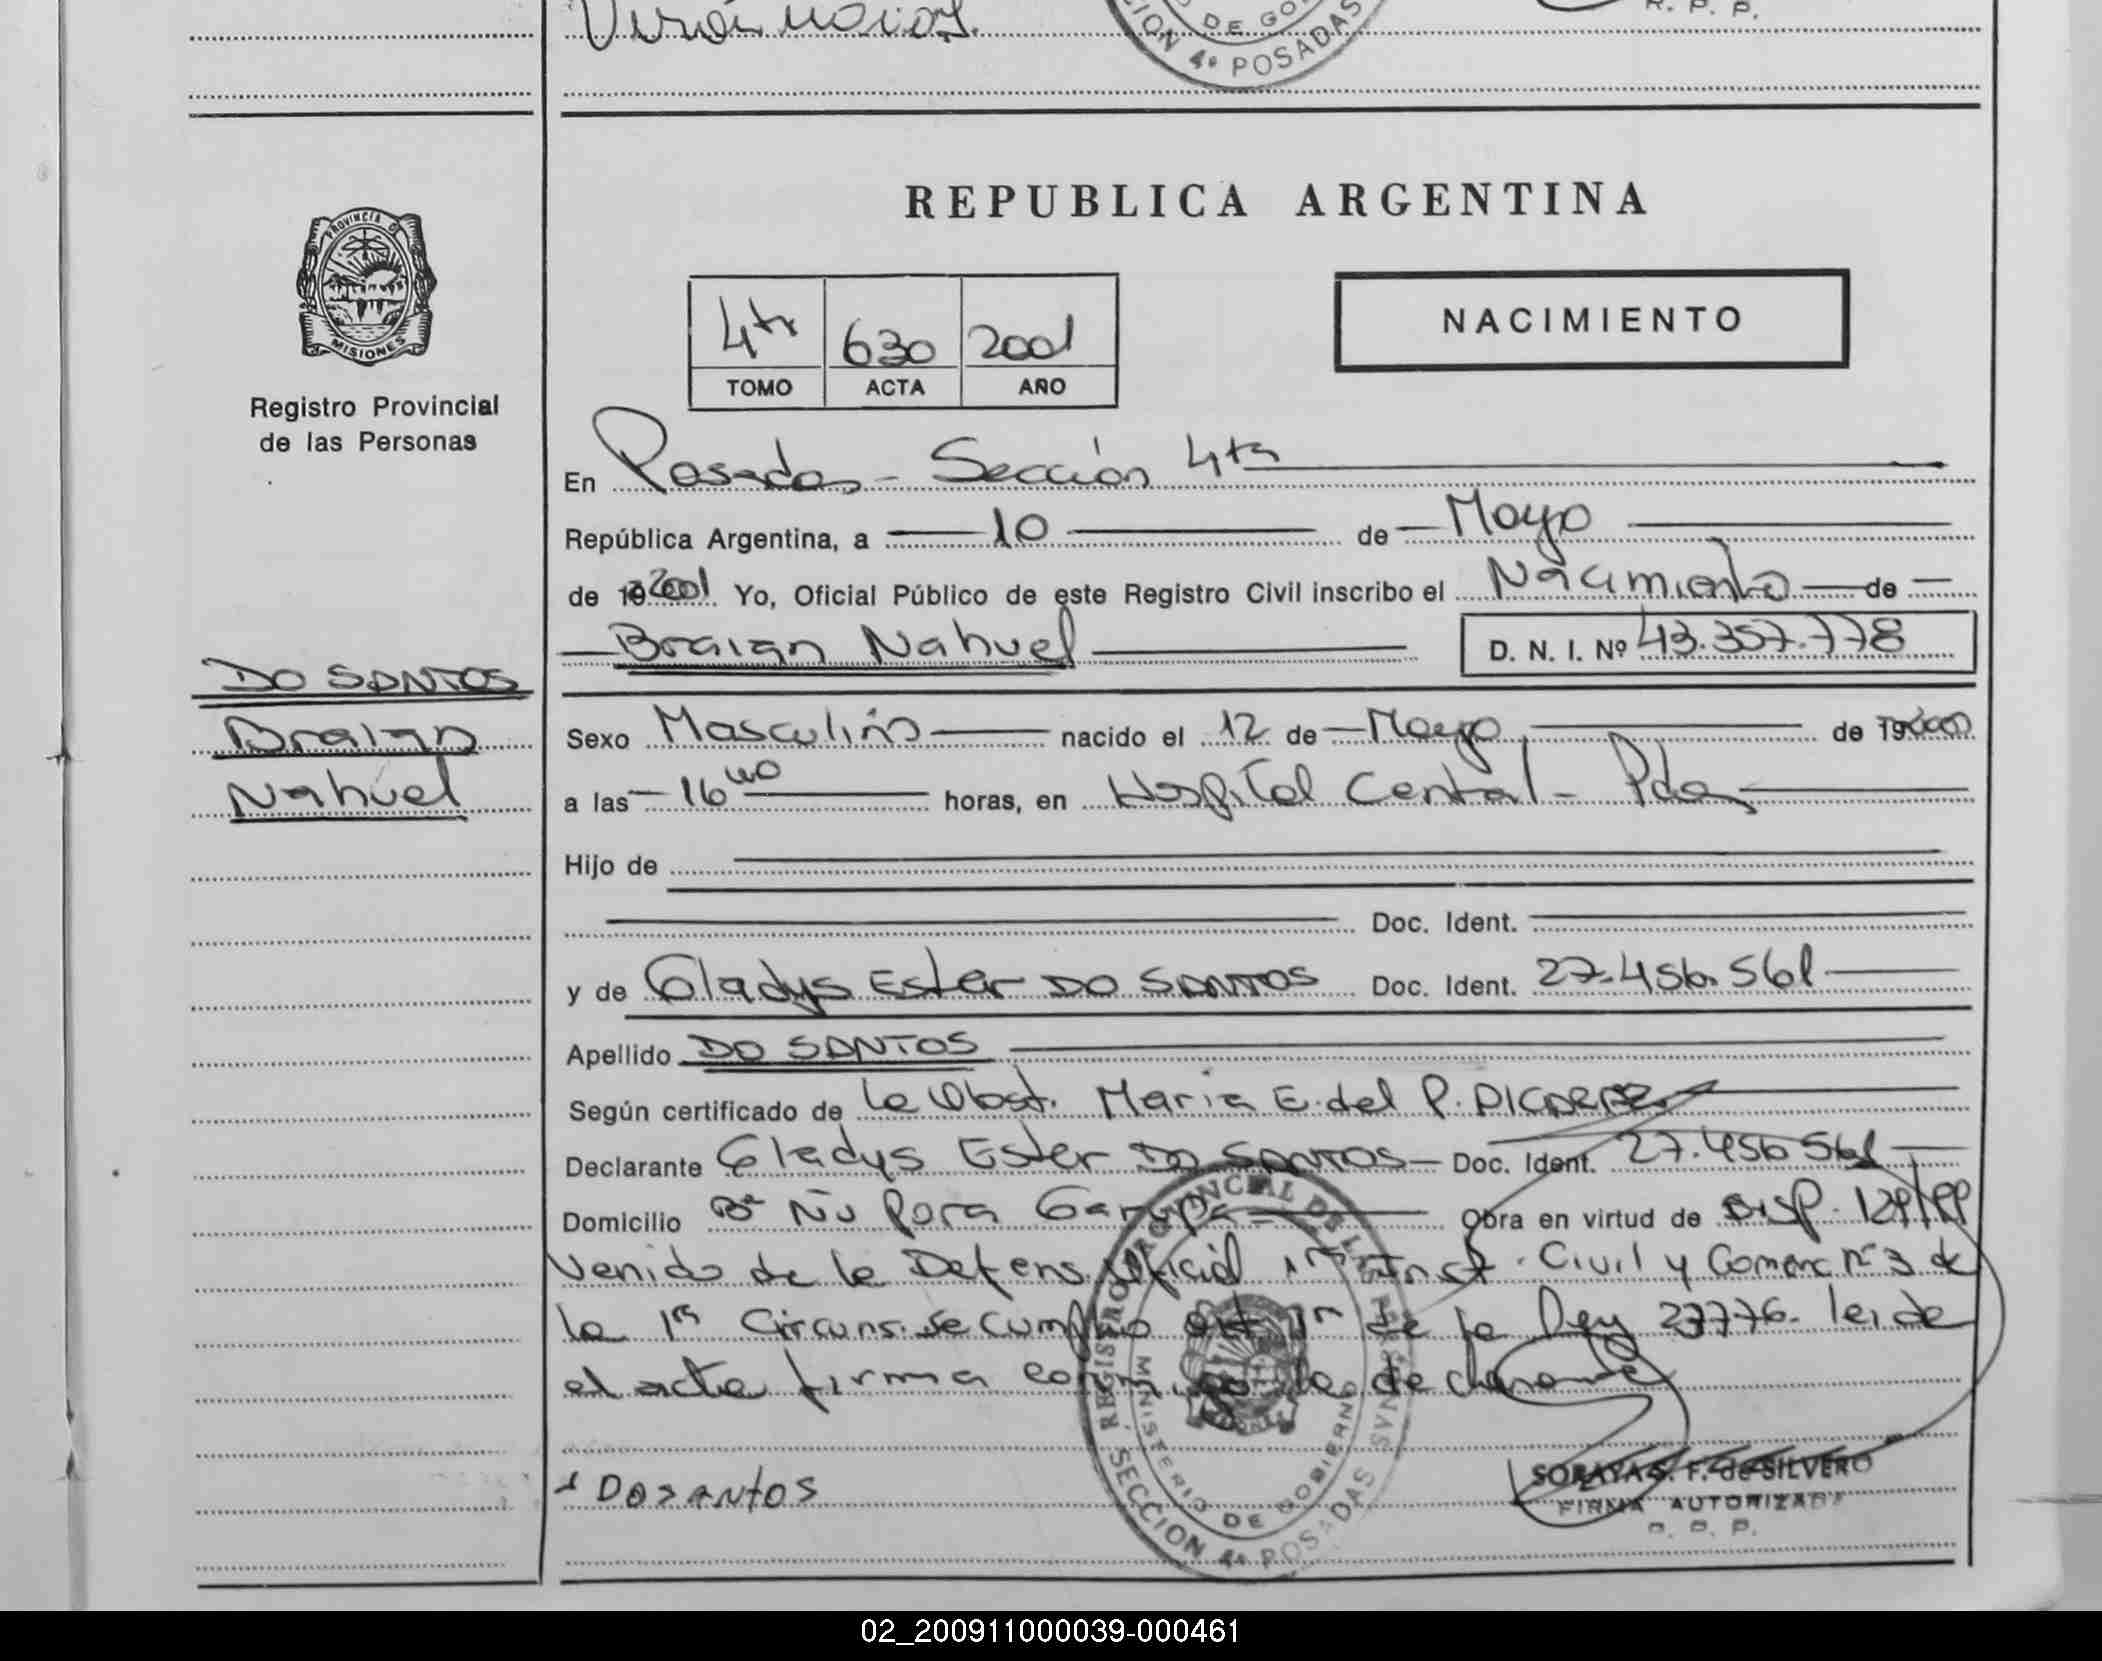 DE GO
CION 4º POSADAS
R. P. P.
REPUBLICA ARGENTINA
PROVINCIA D
MISIONES
4ta 630 2001
TOMO ACTA AÑO
NACIMIENTO
Registro Provincial
de las Personas
En Posadas - Sección 4ta
República Argentina, a 10 de Mayo
de 19 2001 Yo, Oficial Público de este Registro Civil inscribo el Nacimiento de
Braian Nahuel D. N. I. Nº 43.357.778
DO SANTOS
Braian
Nahuel
Sexo Masculino nacido el 12 de Mayo de 2000
a las 16 40 horas, en Hospital Central - Pdas
Hijo de
Doc. Ident.
y de Gladys Ester DO SANTOS Doc. Ident. 27.456.561
Apellido DO SANTOS
Según certificado de la Obst. Maria E. del P.
Declarante Gladys Ester DO SANTOS - Doc. Ident. 27.456 561
Domicilio Bº Ñu Pora Garupa Obra en virtud de DISP. 129/99
Venido de la Defens. Oficial 1ra Inst. Civil y Comerc nº 3 de
la 1ra Circuns. se cumplio de la Ley leida
el acta firma conmigo la declarante
REGISTRO PROVINCIAL DE LAS PERSONAS
MINISTERIO DE GOBIERNO
SECCION 4ª POSADAS
Dosantos
SORAYA S. F. de SILVERO
FIRMA AUTORIZADA
R. P. P.
02_200911000039-000461